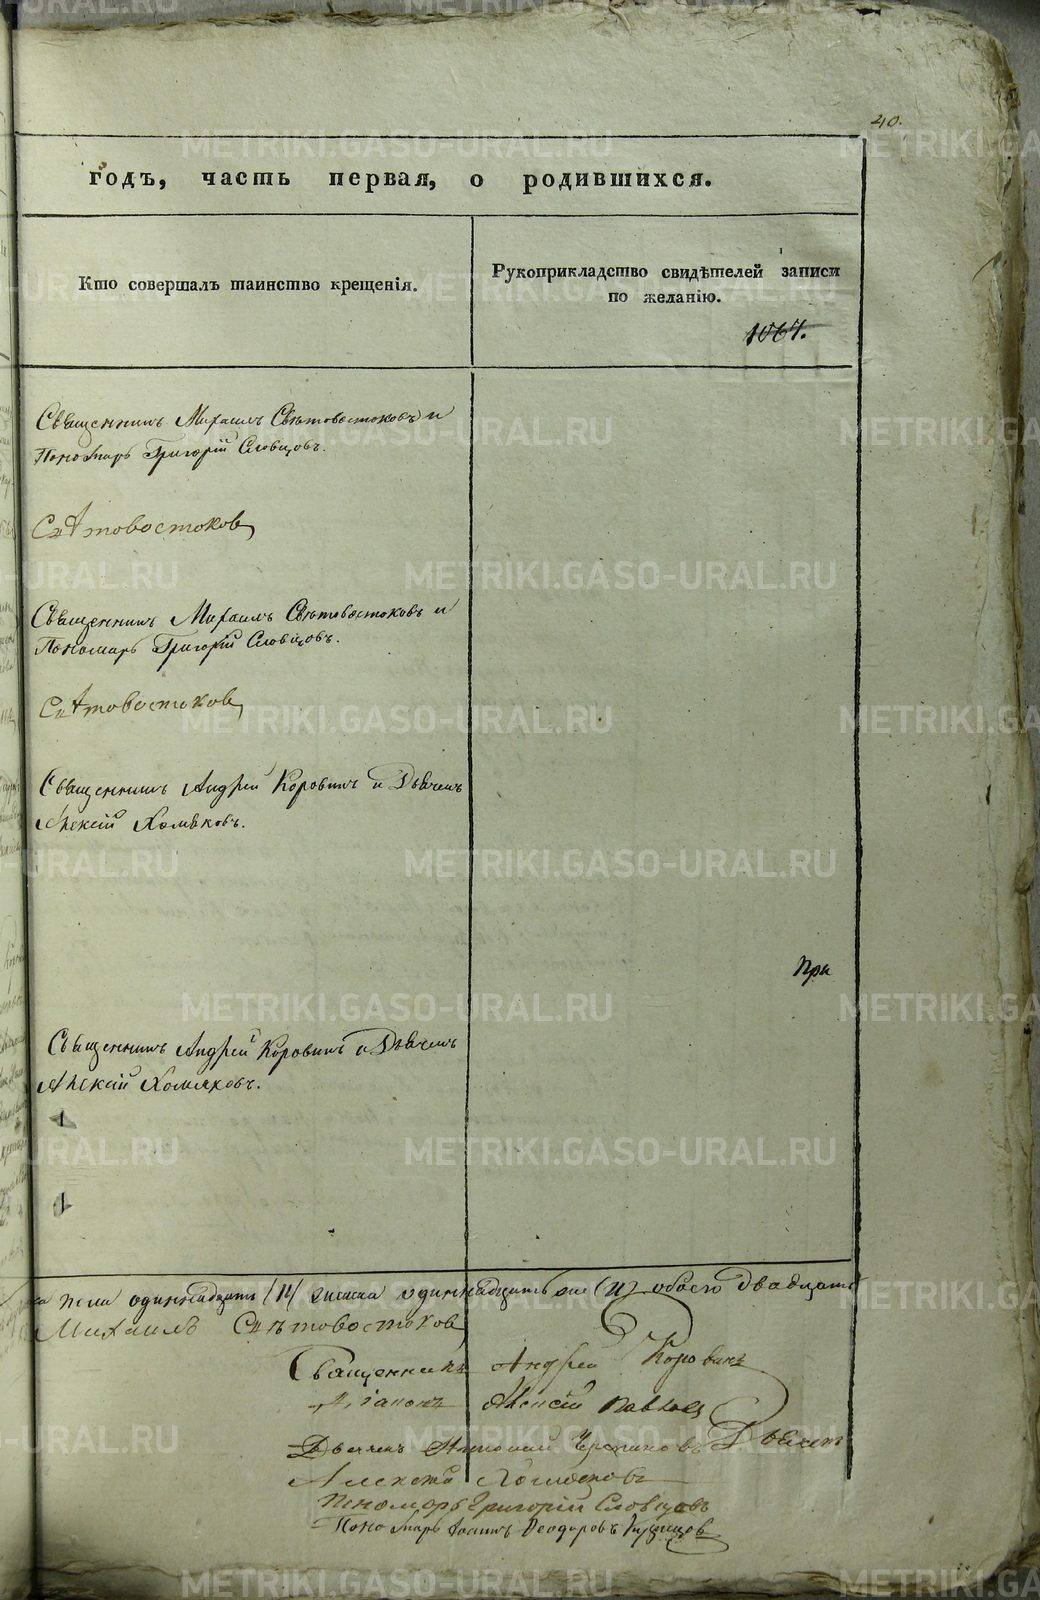 40.
годъ, часть первая, о родившихся.
Кто совершалъ таинство крещенія.
Рукоприкладство свидѣтелей записи
по желанію.
1067.
Священникъ Михаилъ Свѣтовостоковъ и
Пономарь Григорій Словцовъ.
Свѣтовостоковъ
Священникъ Михаилъ Свѣтовостоковъ и
Пономарь Григорій Словцовъ.
Свѣтовостоковъ
Священникъ Андрей Коровинъ и Дьячекъ
Алексій Хомяковъ.
При
Священникъ Андрей Коровинъ и Дьячекъ
Алексій Хомяковъ.
пола одиннадцать (11) женска одиннадцать же (11) обоего двадцать
Михаилъ Свѣтовостоковъ
Священникъ Андрей Коровинъ
Діаконъ Алексій
Дьячекъ Антоній Дьячекъ
Алексѣй Хомяковъ
Пономарь Григорій Словцовъ
Пономарь Іоаннъ Феодоровъ
METRIKI.GASO-URAL.RU